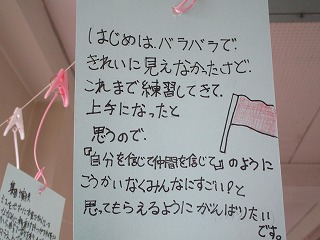 はじめは、バラバラで、
きれいに見えなかったけど、
これまで練習してきて、
上手になったと
思うので、
『自分を信じて仲間を信じて』のように
こうかいなくみんなにすごい!と
思ってもらえるように がんばりたい
です。